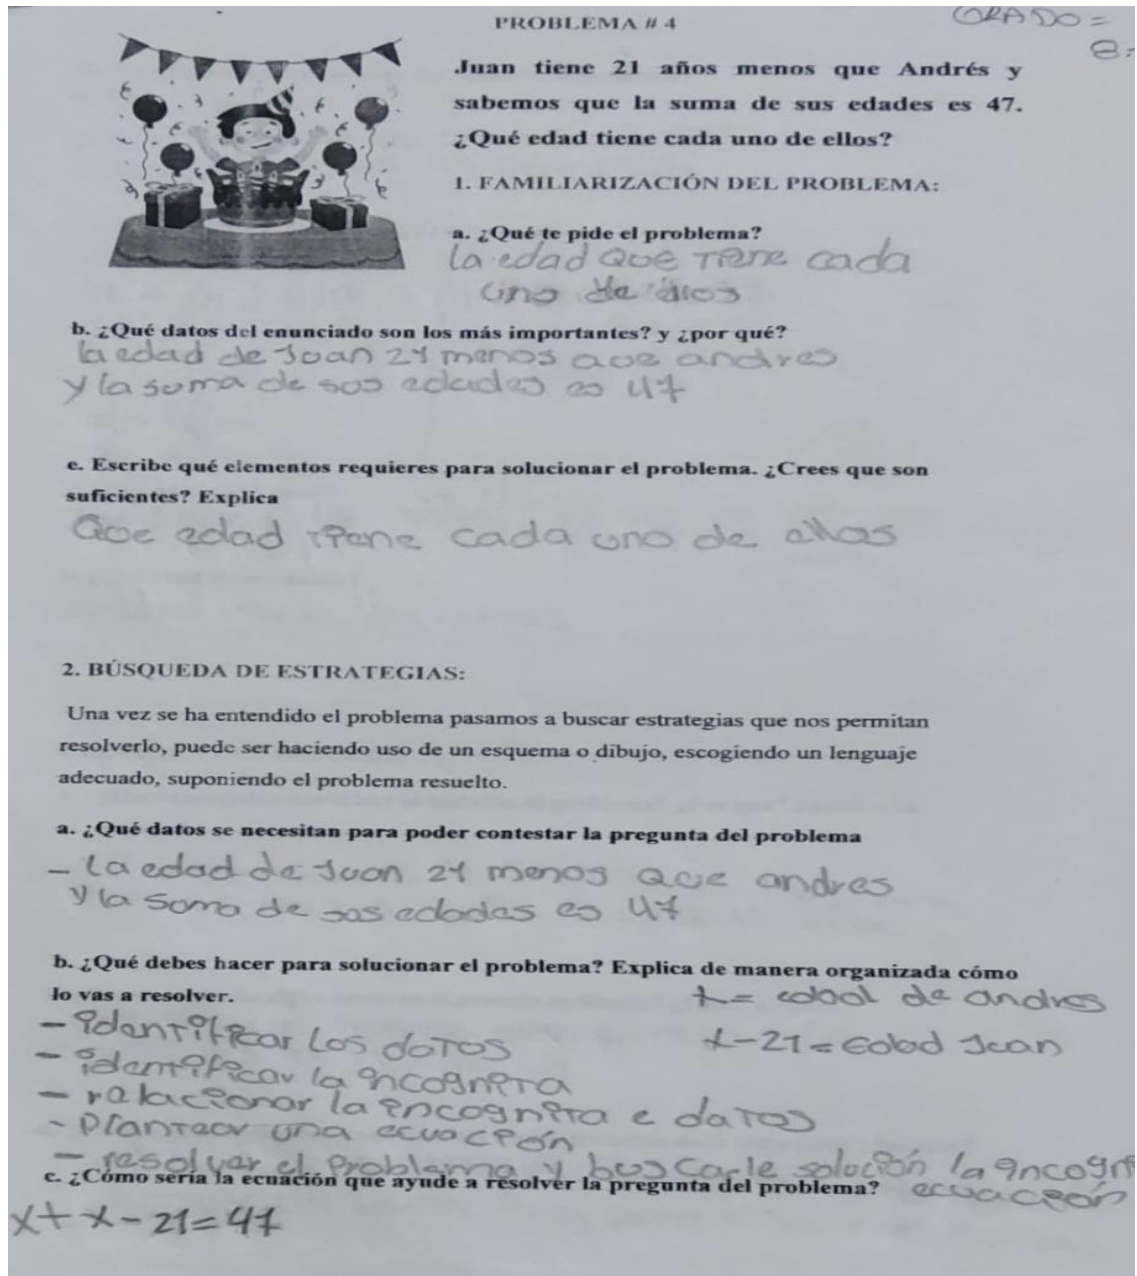 PROBLEMA # 4
GRADO =
8-
Juan tiene 21 años menos que Andrés y
sabemos que la suma de sus edades es 47.
¿Qué edad tiene cada uno de ellos?
1. FAMILIARIZACIÓN DEL PROBLEMA:
a. ¿Qué te pide el problema?
la edad que tiene cada
uno de ellos
b. ¿Qué datos del enunciado son los más importantes? y ¿por qué?
la edad de Juan 21 menos que andres
y la suma de sus edades es 47
c. Escribe qué elementos requieres para solucionar el problema. ¿Crees que son
suficientes? Explica
Que edad tiene cada uno de ellos
2. BÚSQUEDA DE ESTRATEGIAS:
Una vez se ha entendido el problema pasamos a buscar estrategias que nos permitan
resolverlo, puede ser haciendo uso de un esquema o dibujo, escogiendo un lenguaje
adecuado, suponiendo el problema resuelto.
a. ¿Qué datos se necesitan para poder contestar la pregunta del problema
- la edad de Juan 21 menos que andres
y la suma de sus edades es 47
b. ¿Qué debes hacer para solucionar el problema? Explica de manera organizada cómo
lo vas a resolver.
x = edad de andres
x-21 = Edad Juan
- identificar los datos
- identificar la incognita
- relacionar la incognita e datos
- Plantear una ecuación
- resolver el problema y buscarle solución la incogni
ecuación
c. ¿Cómo sería la ecuación que ayude a resolver la pregunta del problema?
x+x-21=47